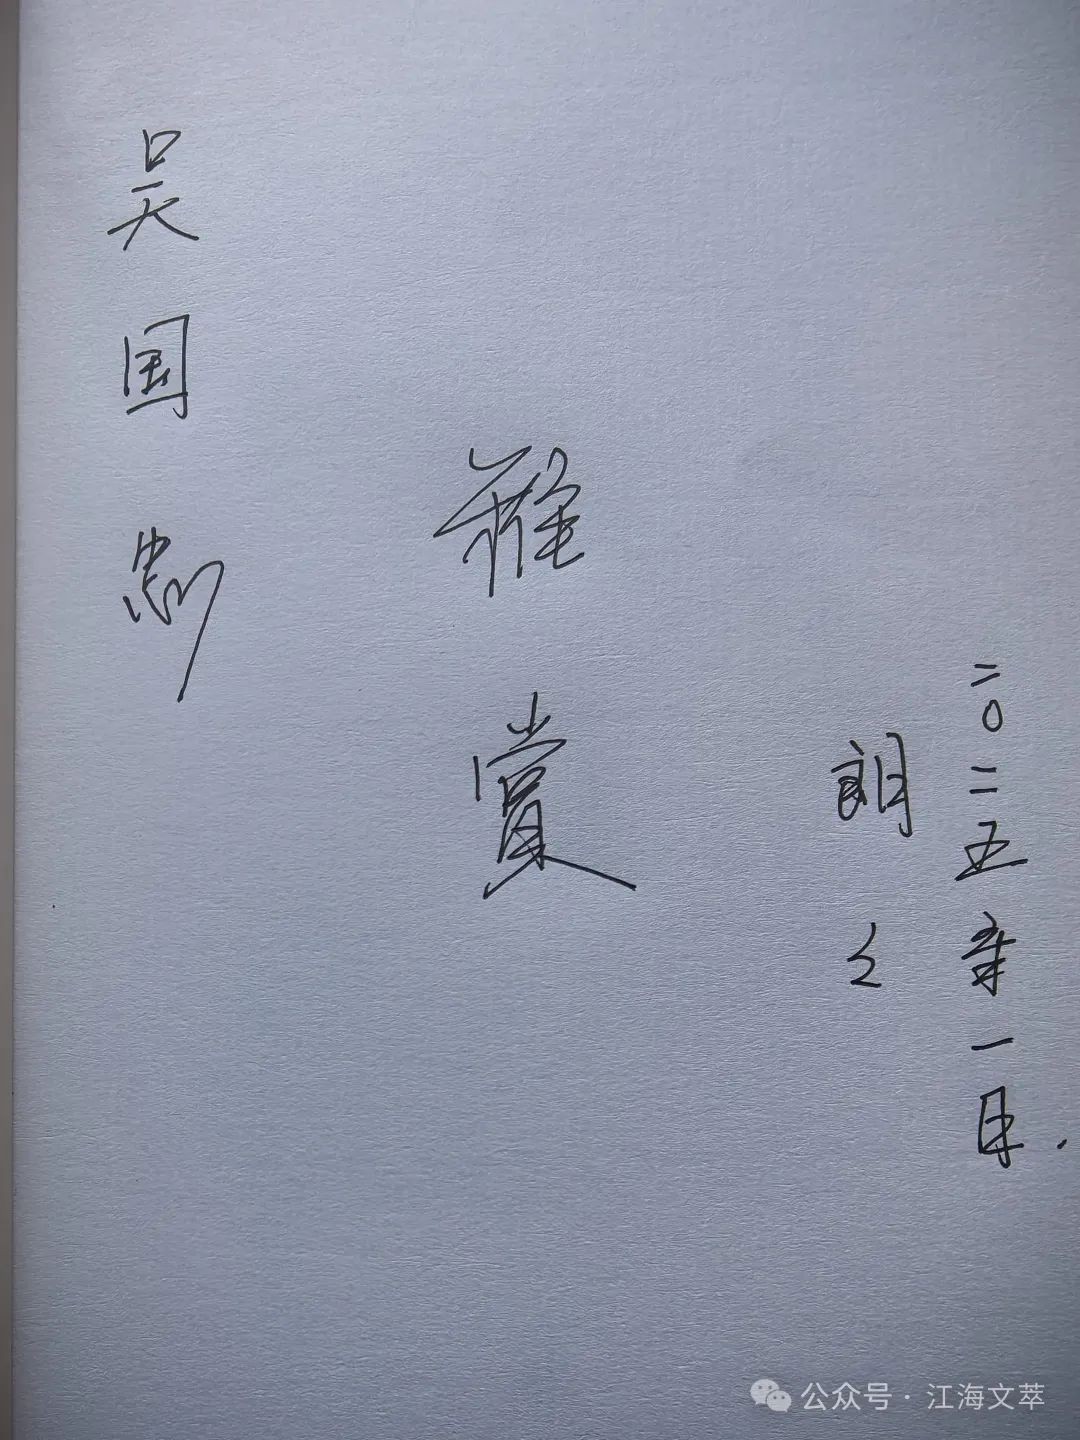 吴国忠
雅賞
朗之
二〇二五年一月.
公众号·江海文萃